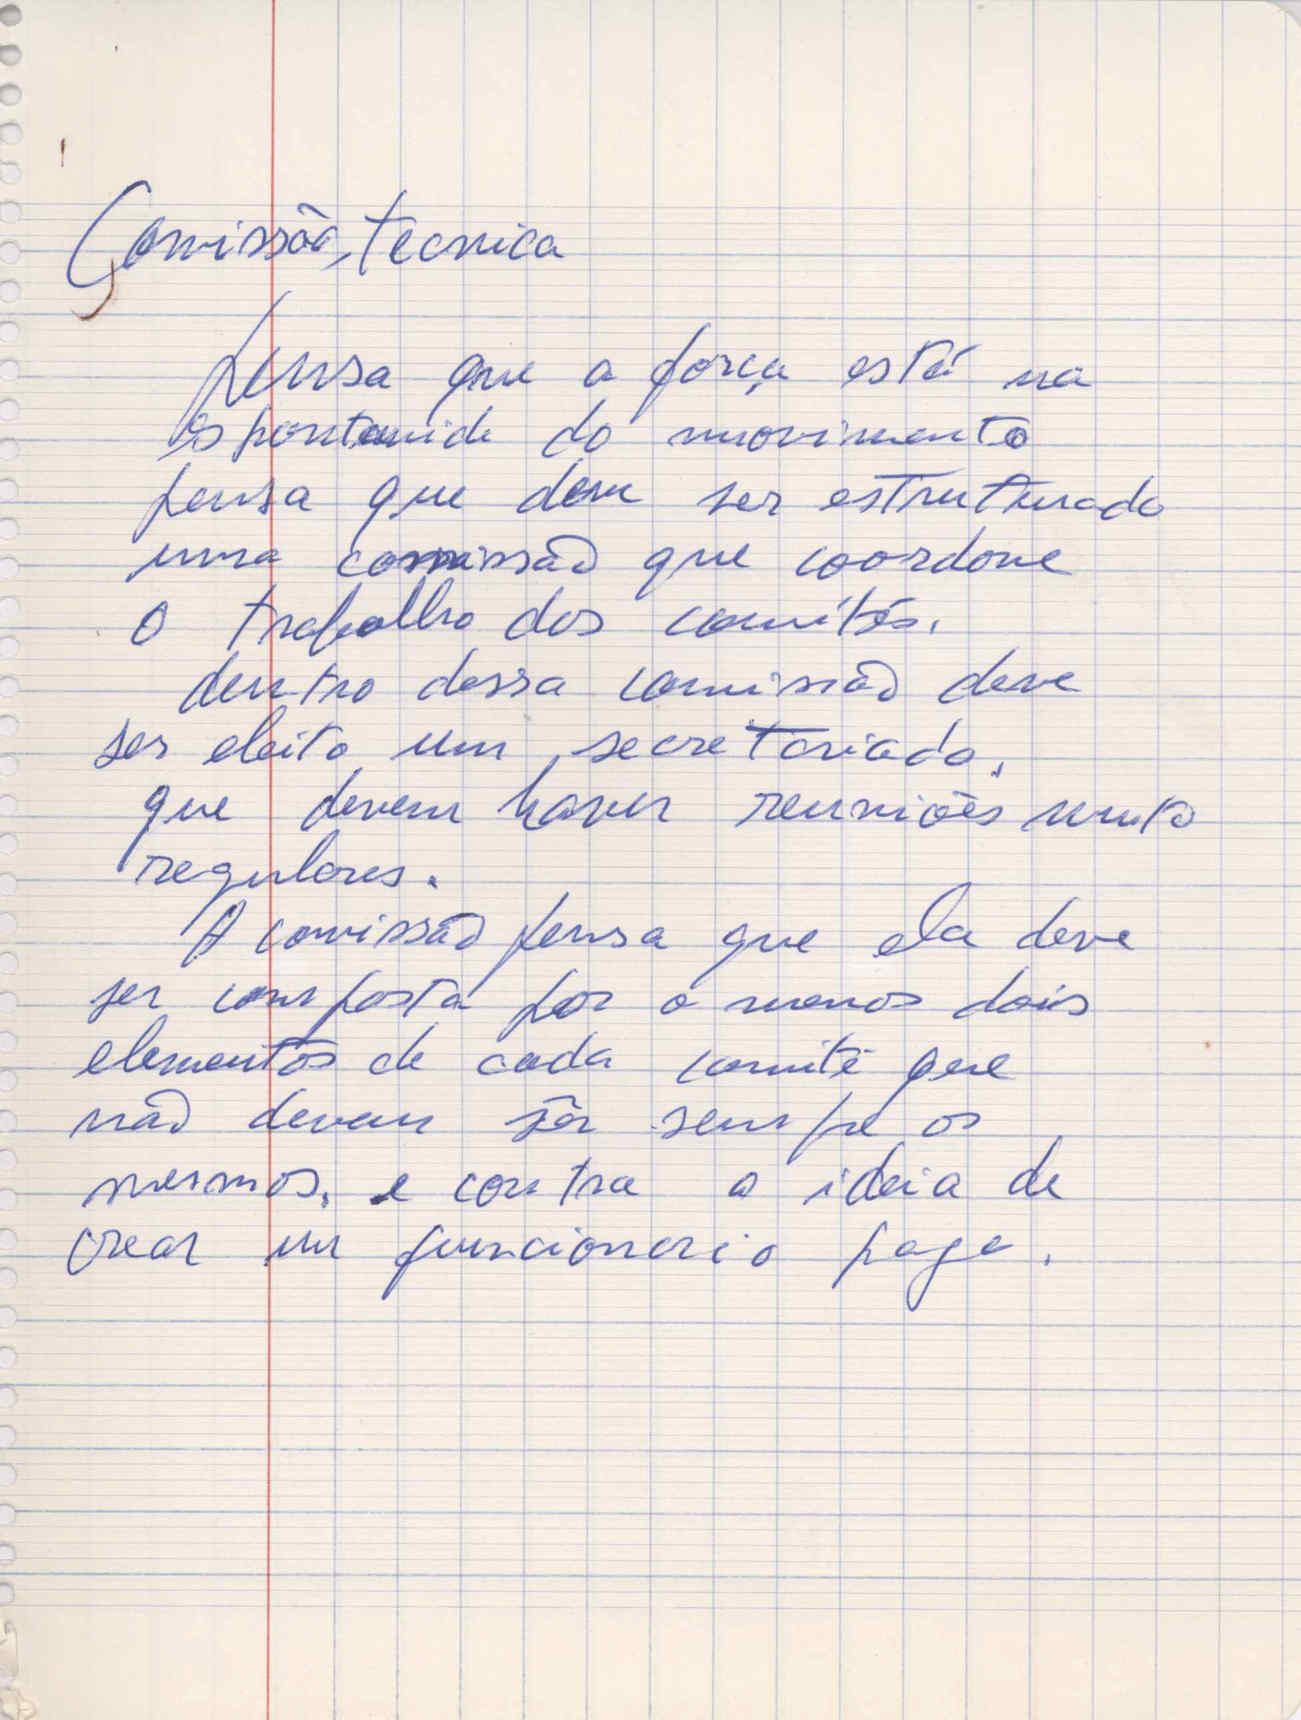 Comissão, tecnica
pensa que a força está na
espontaneide do muovimento
pensa que deve ser estruturado
uma comissão que coordone
o trabalho dos comités.
dentro dessa comissão deve
ser eleito um secretariado.
que devem haver reuniões muito
regulares.
A comissão pensa que ela deve
ser composta por o menos dois
elementos de cada comité que
não devem sêr sempre os
mesmos. e contra a ideia de
crear um funcionario pago.